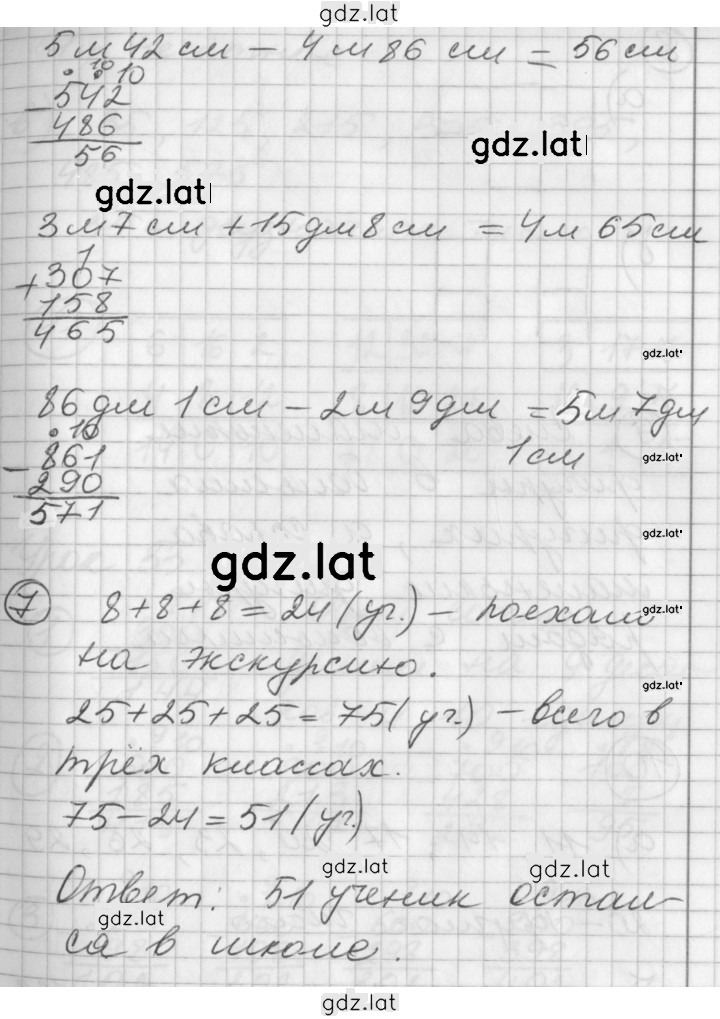 gdz.lat
5 м 42 см – 4 м 86 см = 56 см
10 10
– 542
486
56
gdz.lat
gdz.lat
3 м 7 см + 15 дм 8 см = 4 м 65 см
1
+ 307
158
465
gdz.lat
86 дм 1 см – 2 м 9 дм = 5 м 7 дм
1 см
gdz.lat
10
– 861
290
571
gdz.lat
gdz.lat
7 8 + 8 + 8 = 24 (уч.) – поехали
gdz.lat
на экскурсию.
gdz.lat
25 + 25 + 25 = 75 (уч.) – всего в
трёх классах.
75 – 24 = 51 (уч.)
gdz.lat
gdz.lat
Ответ: 51 ученик остал-
gdz.lat
ся в школе.
gdz.lat